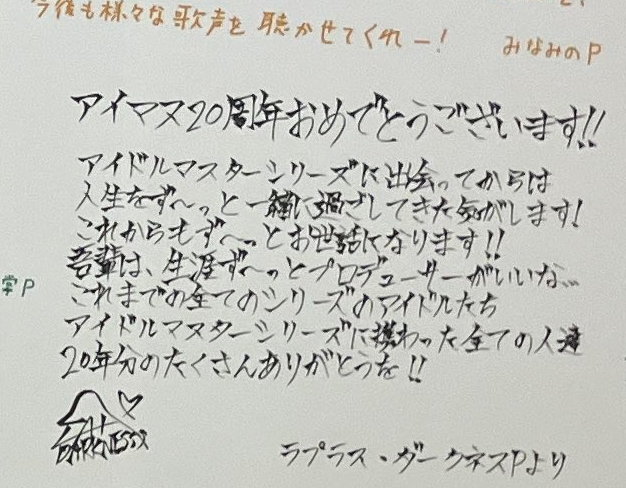 今後も様々な歌声を聴かせてくれー!
みなみのP
アイマス20周年おめでとうございます!!
アイドルマスターシリーズに出会ってからは
人生をず〜っと一緒に過ごしてきた気がします!
これからもず〜っとお世話になります!!
吾輩は、生涯ず〜っとプロデューサーがいいな…
これまでの全てのシリーズのアイドルたち
アイドルマスターシリーズに携わった全ての人達
20年分のたくさんありがとうを!!
DARKNESS
ラプラス・ダークネスPより